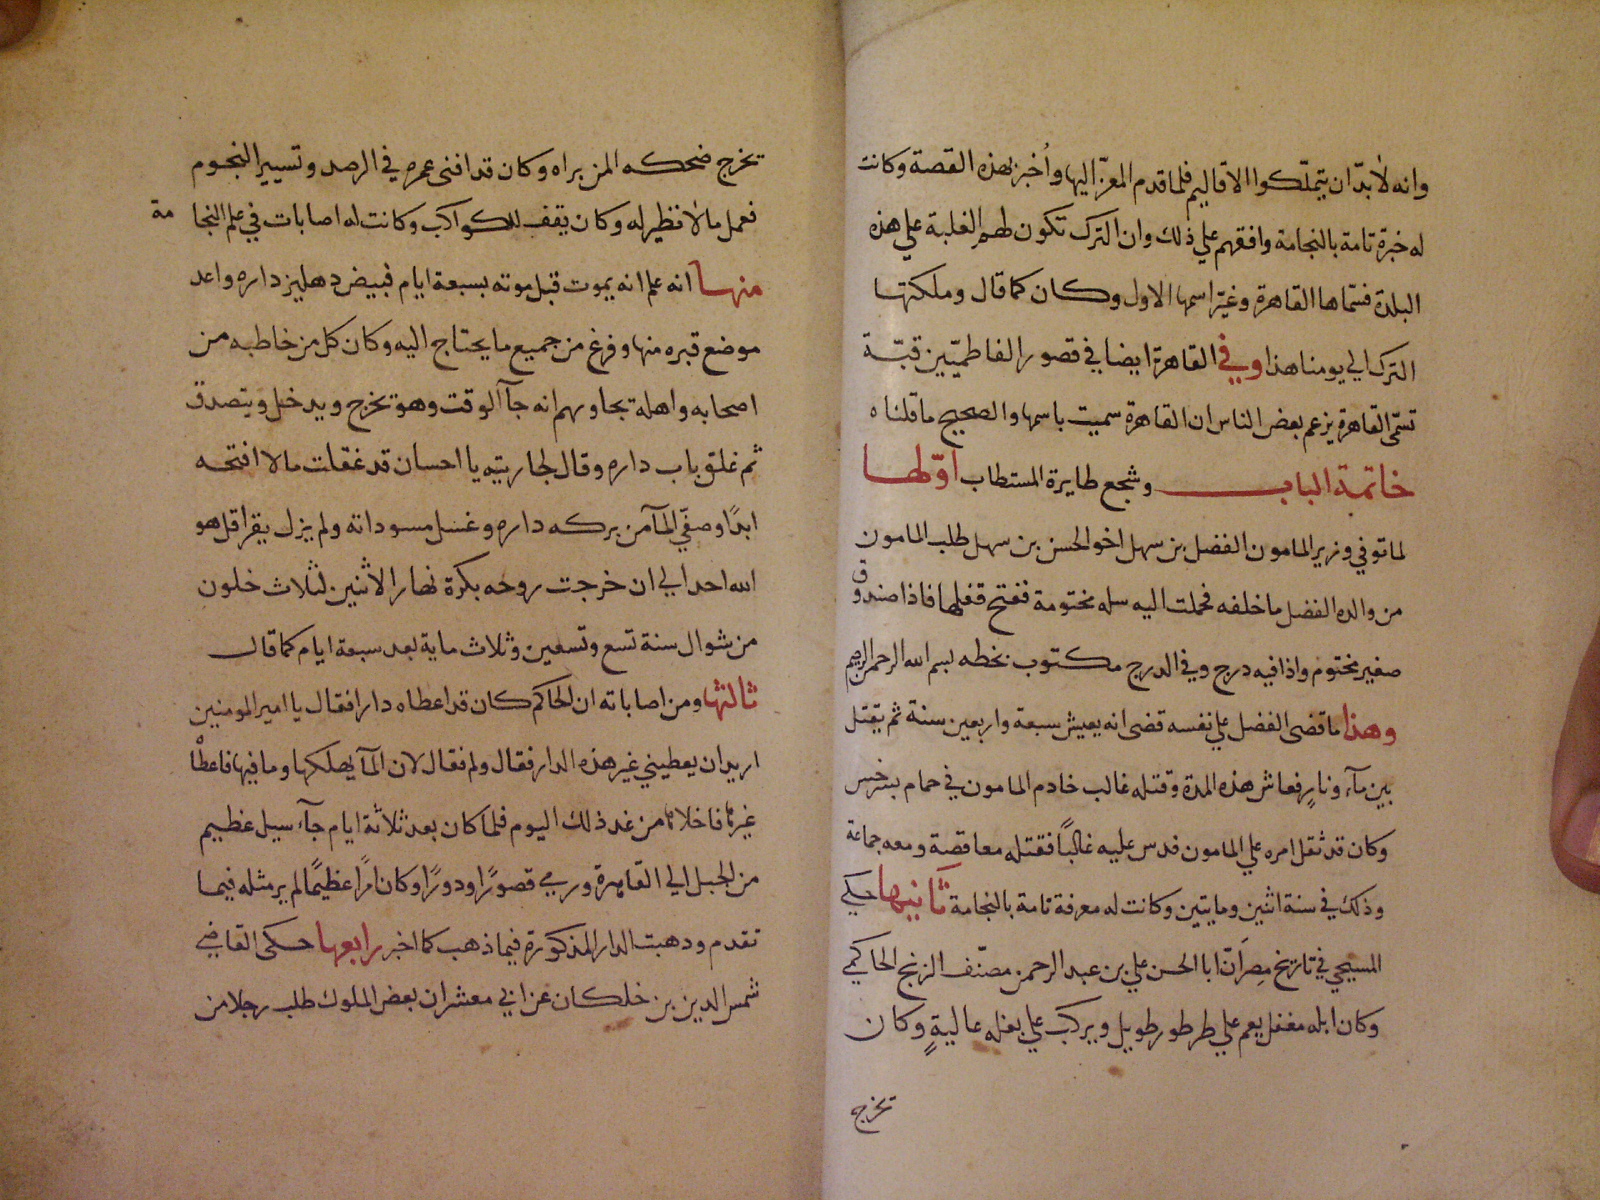 وانه لابدّ ان يتملّكوا الاقاليم فلما قدم المعزّ اليها وأُخبر بهذه القصة وكانت
له خبرة تامة بالنجامة وافقهم علي ذلك وان الترك تكون لهم الغلبة علي هذه
البلدة فسمّاها القاهرة وغيّر اسمها الاول وكان كما قال وملكتها
الترك الي يومنا هذا وفي القاهرة ايضا في قصور الفاطميّين قبّة
تسمّى القاهرة يزعم بعض الناس ان القاهرة سميت باسمها والصحيح ما قلناه
خاتمة الباب وشجع طايرة المستطاب اوّلها
لما توفي وزير المامون الفضل بن سهل اخو الحسن بن سهل طلب المامون
من والده الفضل ما خلفه فحملت اليه سله مختومة ففتح قفلها فاذا صندوق
صغير مختوم واذا فيه درج وفي الدرج مكتوب بخطه بسم الله الرحمن الرحيم
وهذا ما قضى الفضل علي نفسه قضى انه يعيش سبعة واربعين سنة ثم يقتل
بين مآء ونارٍ فعاش هذه المدة وقتله غالب خادم المامون في حمام بسرخس
وكان قد ثقل امره علي المامون فدس عليه غالبًا فقتله معاقصة ومعه جماعة
وذلك في سنة اثنين ومايتين وكانت له معرفة تامة بالنجامة ثانيها حكي
المسيحي في تاريخ مصر انّ ابا الحسن علي بن عبد الرحمن مصنّف الزيج الحاكمي
وكان ابله مغفل يعم علي طرطور طويل ويركب علي بغله عاليةٍ وكان
تخرج
تخرج ضحكه المن يراه وكان قد افنى عمره في الرصد وتسيير النجوم
فعمل مالا نظير له وكان يقف للكواكب وكانت له اصابات في علم النجامة
منها انه علم انه يموت قبل موته بسبعة ايام فبيض دهليز داره واعد
موضع قبره منها وفرغ من جميع ما يحتاج اليه وكان كل من خاطبه من
اصحابه واهله تجاوبهم انه جآ الوقت وهو تخرج ويدخل ويتصدق
ثم غلق باب داره وقال لجاريته يا احسان قد غقلت مالا افتحه
ابدًا وصفّي المآ من بركه داره وغسل مسوداته ولم يزل يقرا قل هو
الله احد الي ان خرجت روحه بكرة نهار الاثنين لثلاث خلون
من شوال سنة تسع وتسعين وثلاث ماية بعد سبعة ايام كما قال
ثالثها ومن اصاباته ان الحاكم كان قد اعطاه دارا فقال يا امير المومنين
اريد ان يعطيني غير هذه الدار فقال ولم فقال لان المآ يهلكها وما فيها فاعطا
غيرها فاخلاها من غد ذلك اليوم فلما كان بعد ثلاثة ايام جآء سيل عظيم
من الجبل الي القاهرة ورمي قصورًا ودورًا وكان امرًا عظيمًا لم ير مثله فيما
تقدم ودهبت الدار المذكورة فيما ذهب كما اخبر رابعها حكى القاضي
شمس الدين بن خلكان عن ابي معشر ان بعض الملوك طلب رجلا من